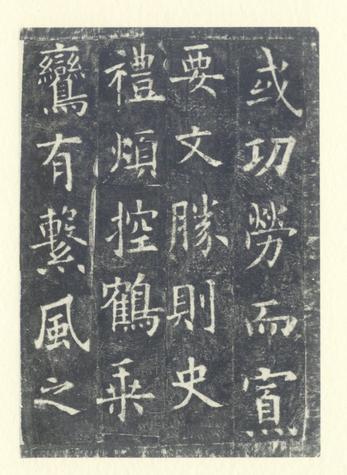 或功勞而寡
要文勝則史
禮煩控鶴乗
鸞有繫風之